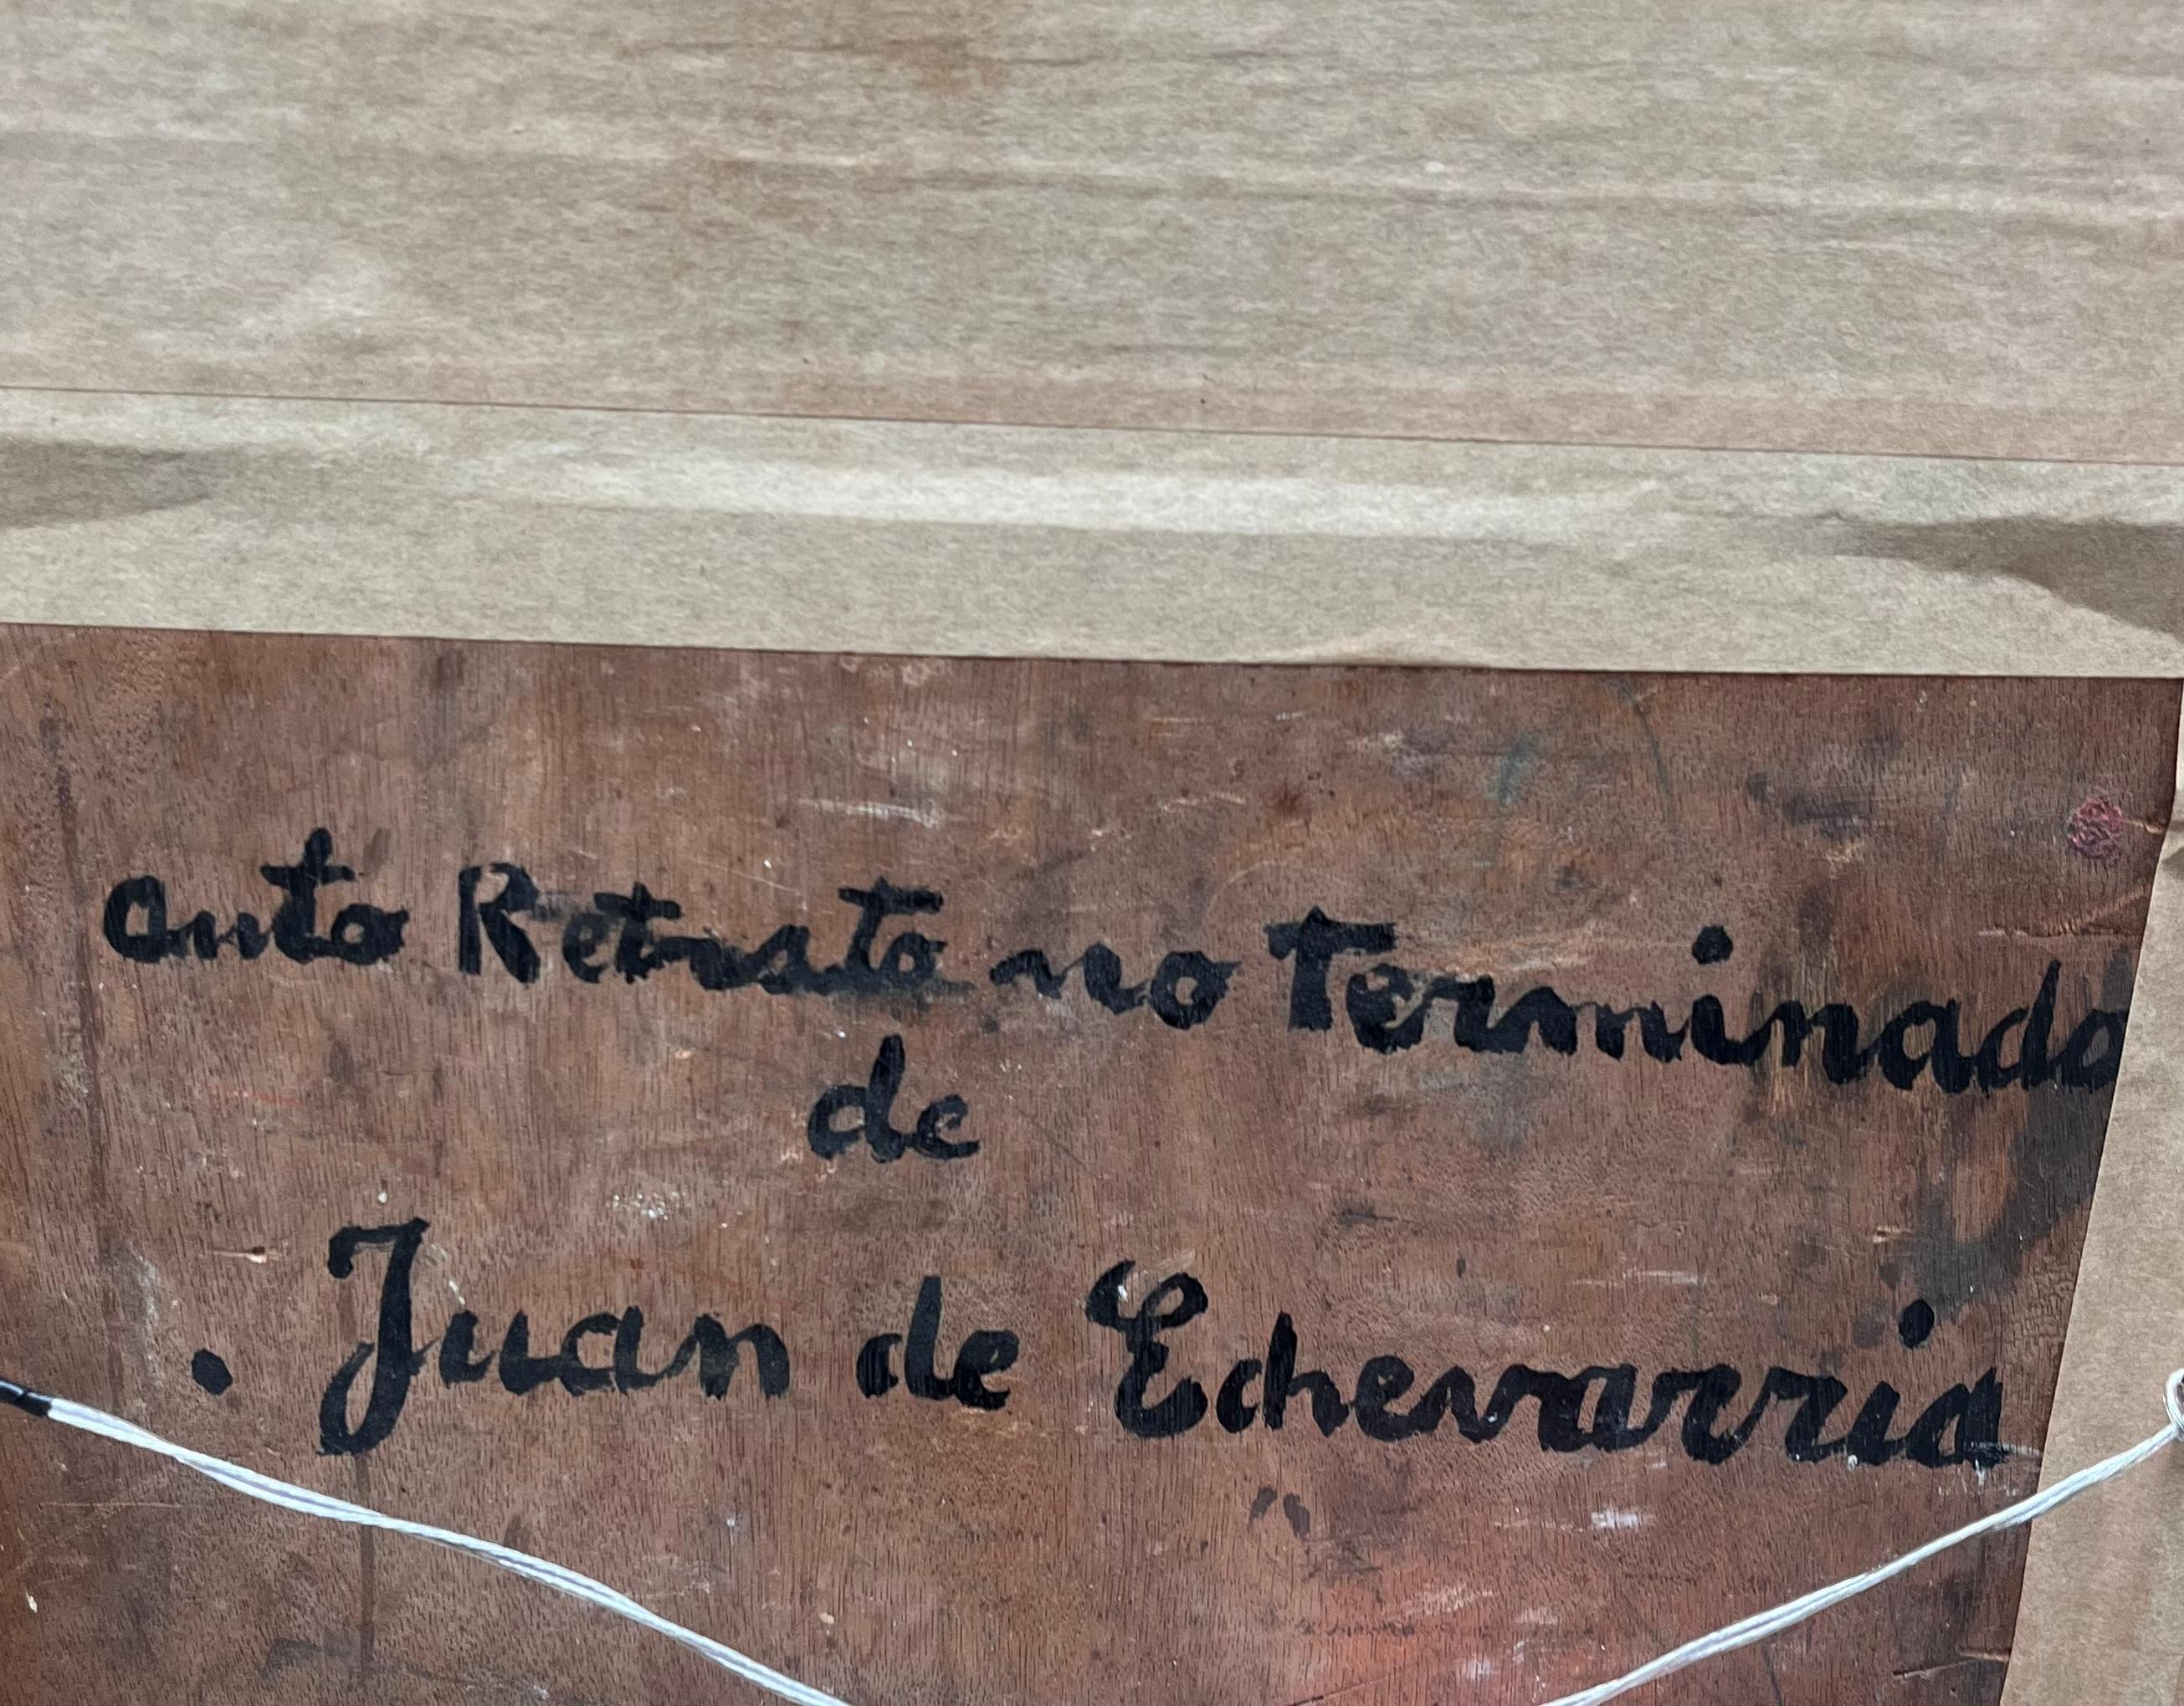 auto Retrato no Terminado
de
. Juan de Echevarria